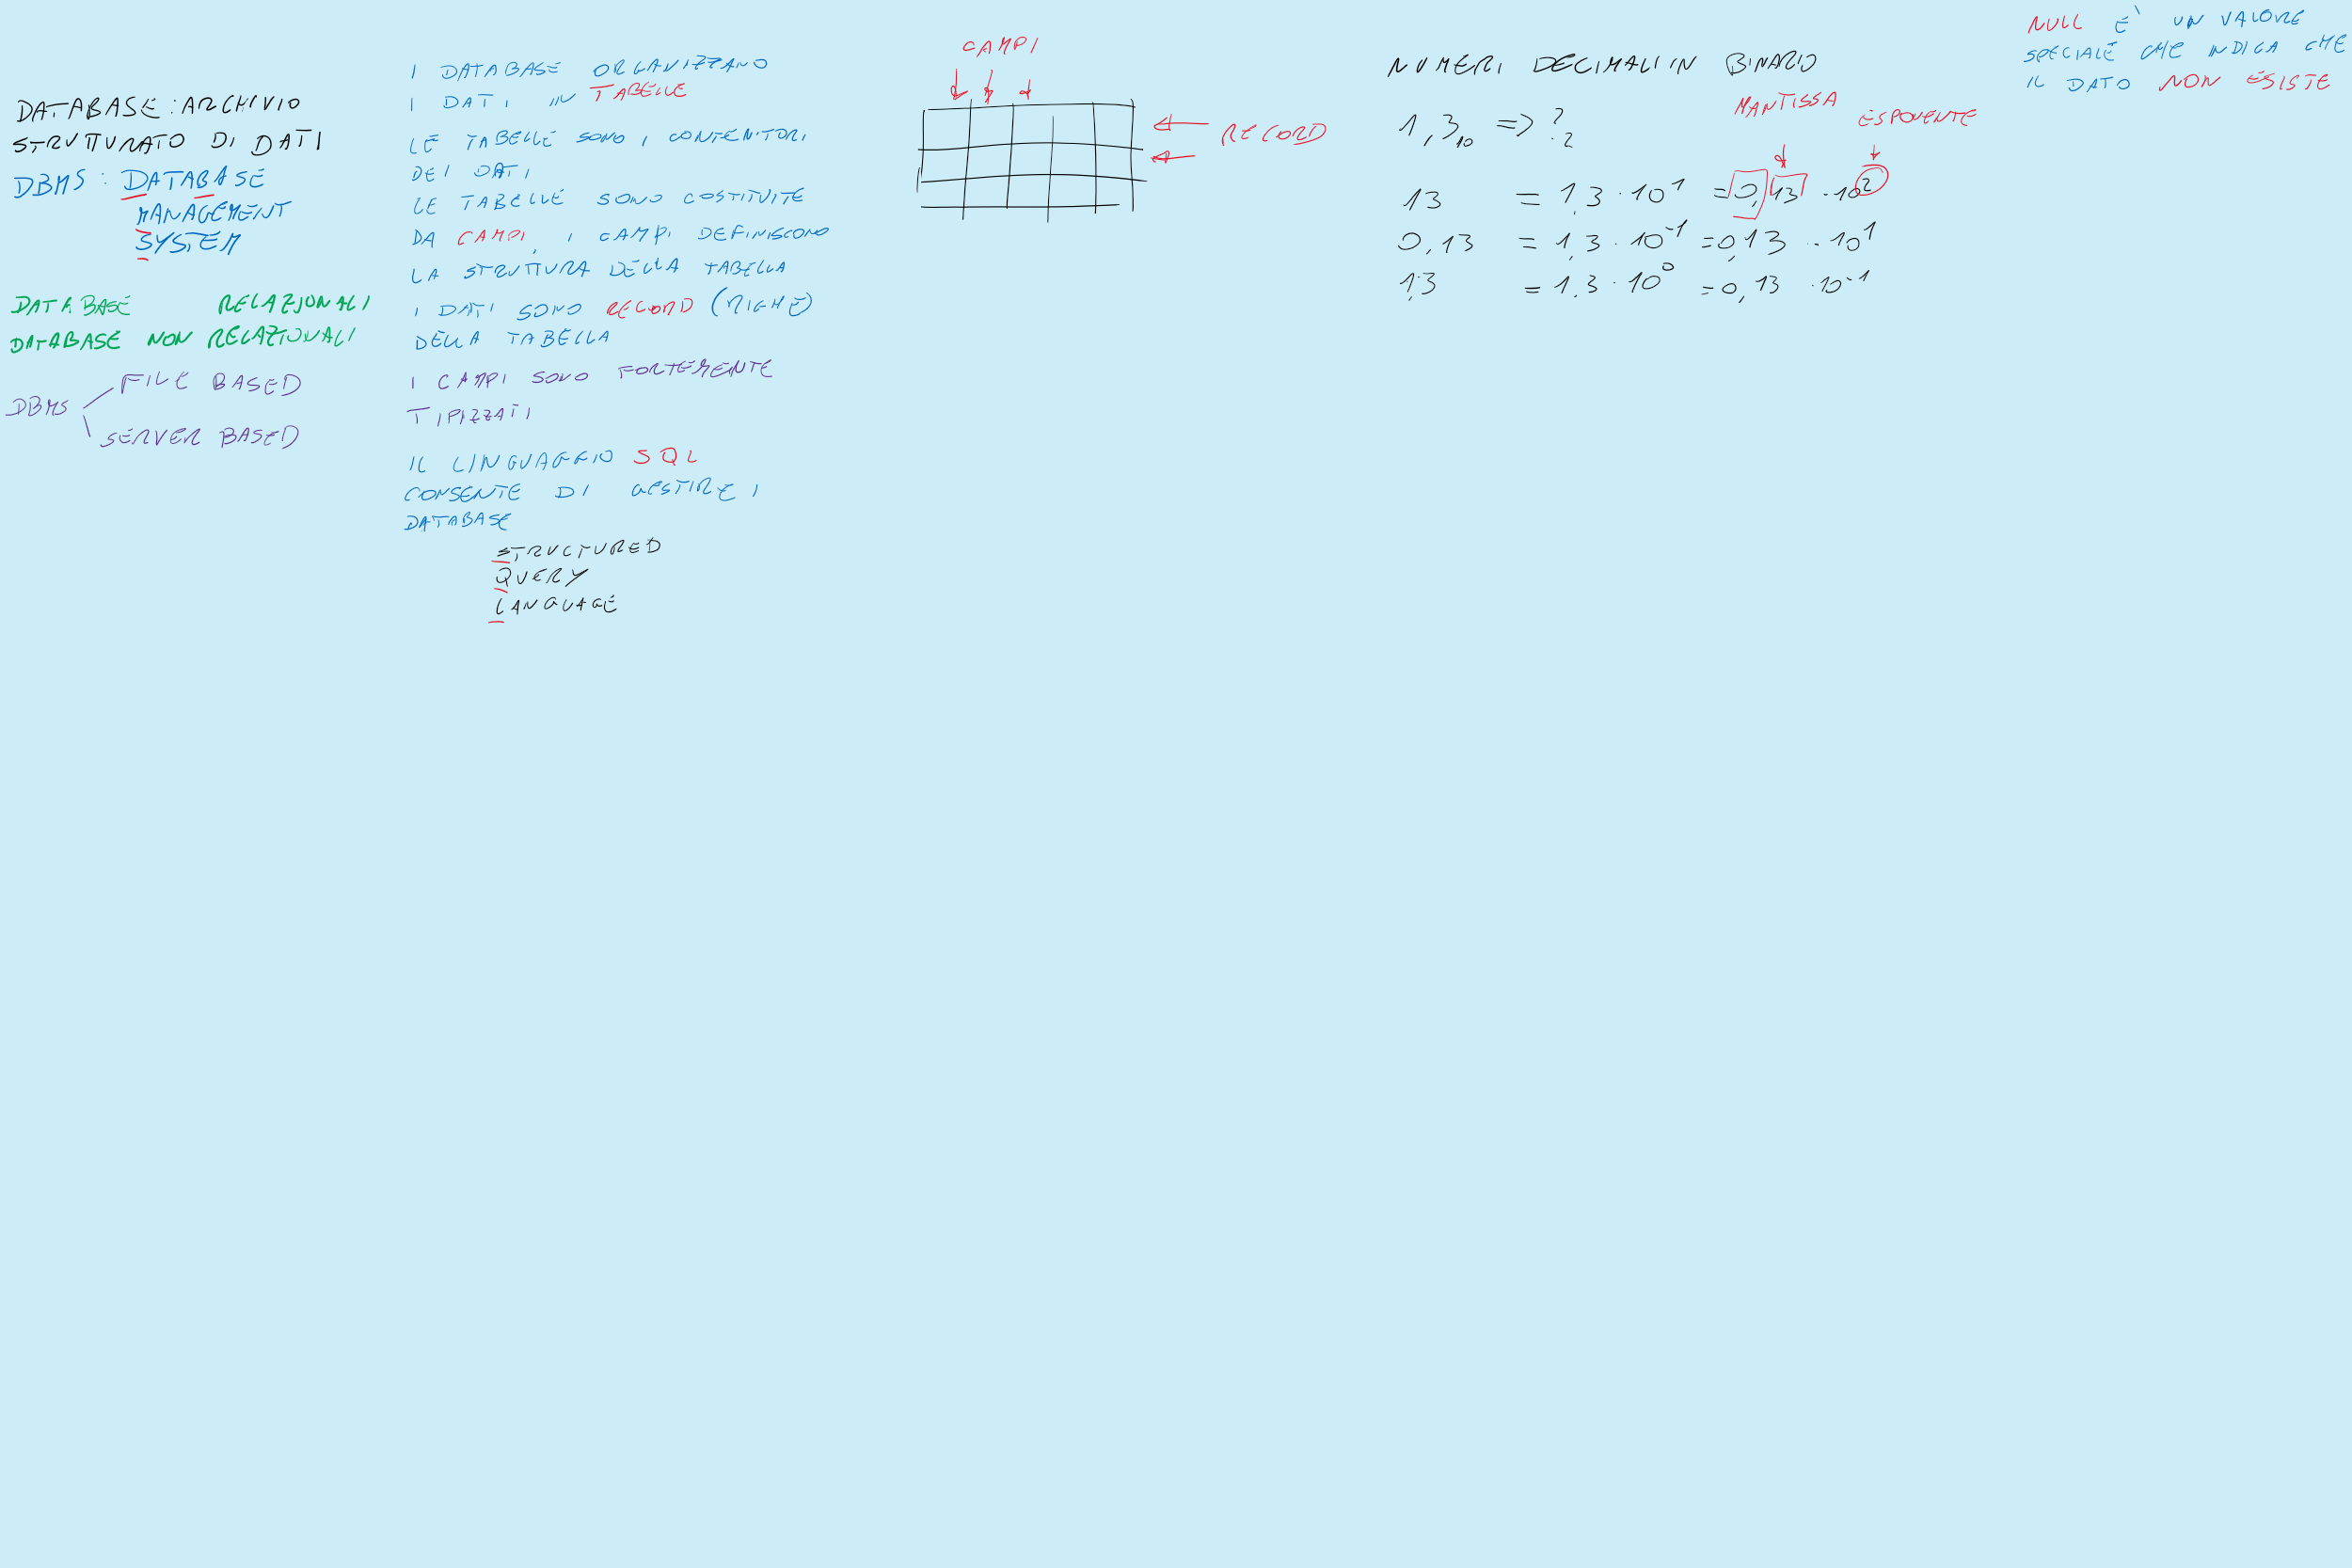 DATABASE : ARCHIVIO
STRUTTURATO DI DATI
DBMS : DATABASE
MANAGEMENT
SYSTEM
DATABASE RELAZIONALI
DATABASE NON RELAZIONALI
DBMS
FILE BASED
SERVER BASED
I DATABASE ORGANIZZANO
I DATI IN TABELLE
LE TABELLE SONO I CONTENITORI
DEI DATI
LE TABELLE SONO COSTITUITE
DA CAMPI, I CAMPI DEFINISCONO
LA STRUTTURA DELLA TABELLA
I DATI SONO RECORD (RIGHE)
DELLA TABELLA
I CAMPI SONO FORTEMENTE
TIPIZZATI
IL LINGUAGGIO SQL
CONSENTE DI GESTIRE I
DATABASE
STRUCTURED
QUERY
LANGUAGE
CAMPI
RECORD
NUMERI DECIMALI IN BINARIO
MANTISSA
ESPONENTE
1,3₁₀ => ?₂
13 = 1,3 · 10¹ = 0,13 · 10²
0,13 = 1,3 · 10⁻¹ = 0,13 · 10¹
1,3 = 1,3 · 10⁰ = 0,13 · 10⁻¹
NULL E' UN VALORE
SPECIALE CHE INDICA CHE
IL DATO NON ESISTE